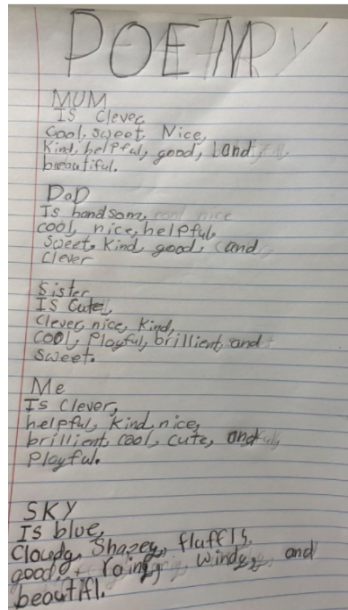 POETRY
MUM
Is Clever,
Cool, sweet, Nice,
Kind, helpful, good, and
beautiful.
DaD
Is handsom,
cool, nice, helpful,
Sweet, Kind, good, and
Clever
Sister
Is Cute,
Clever, nice, kind,
COOL, Playful, brillient, and
Sweet.
Me
Is Clever,
helpful, Kind, nice,
brillient, cool, cute, and
Playful.
SKY
Is blue,
Cloudy, fluffls.
good, rainy, windy, and
beautifl.